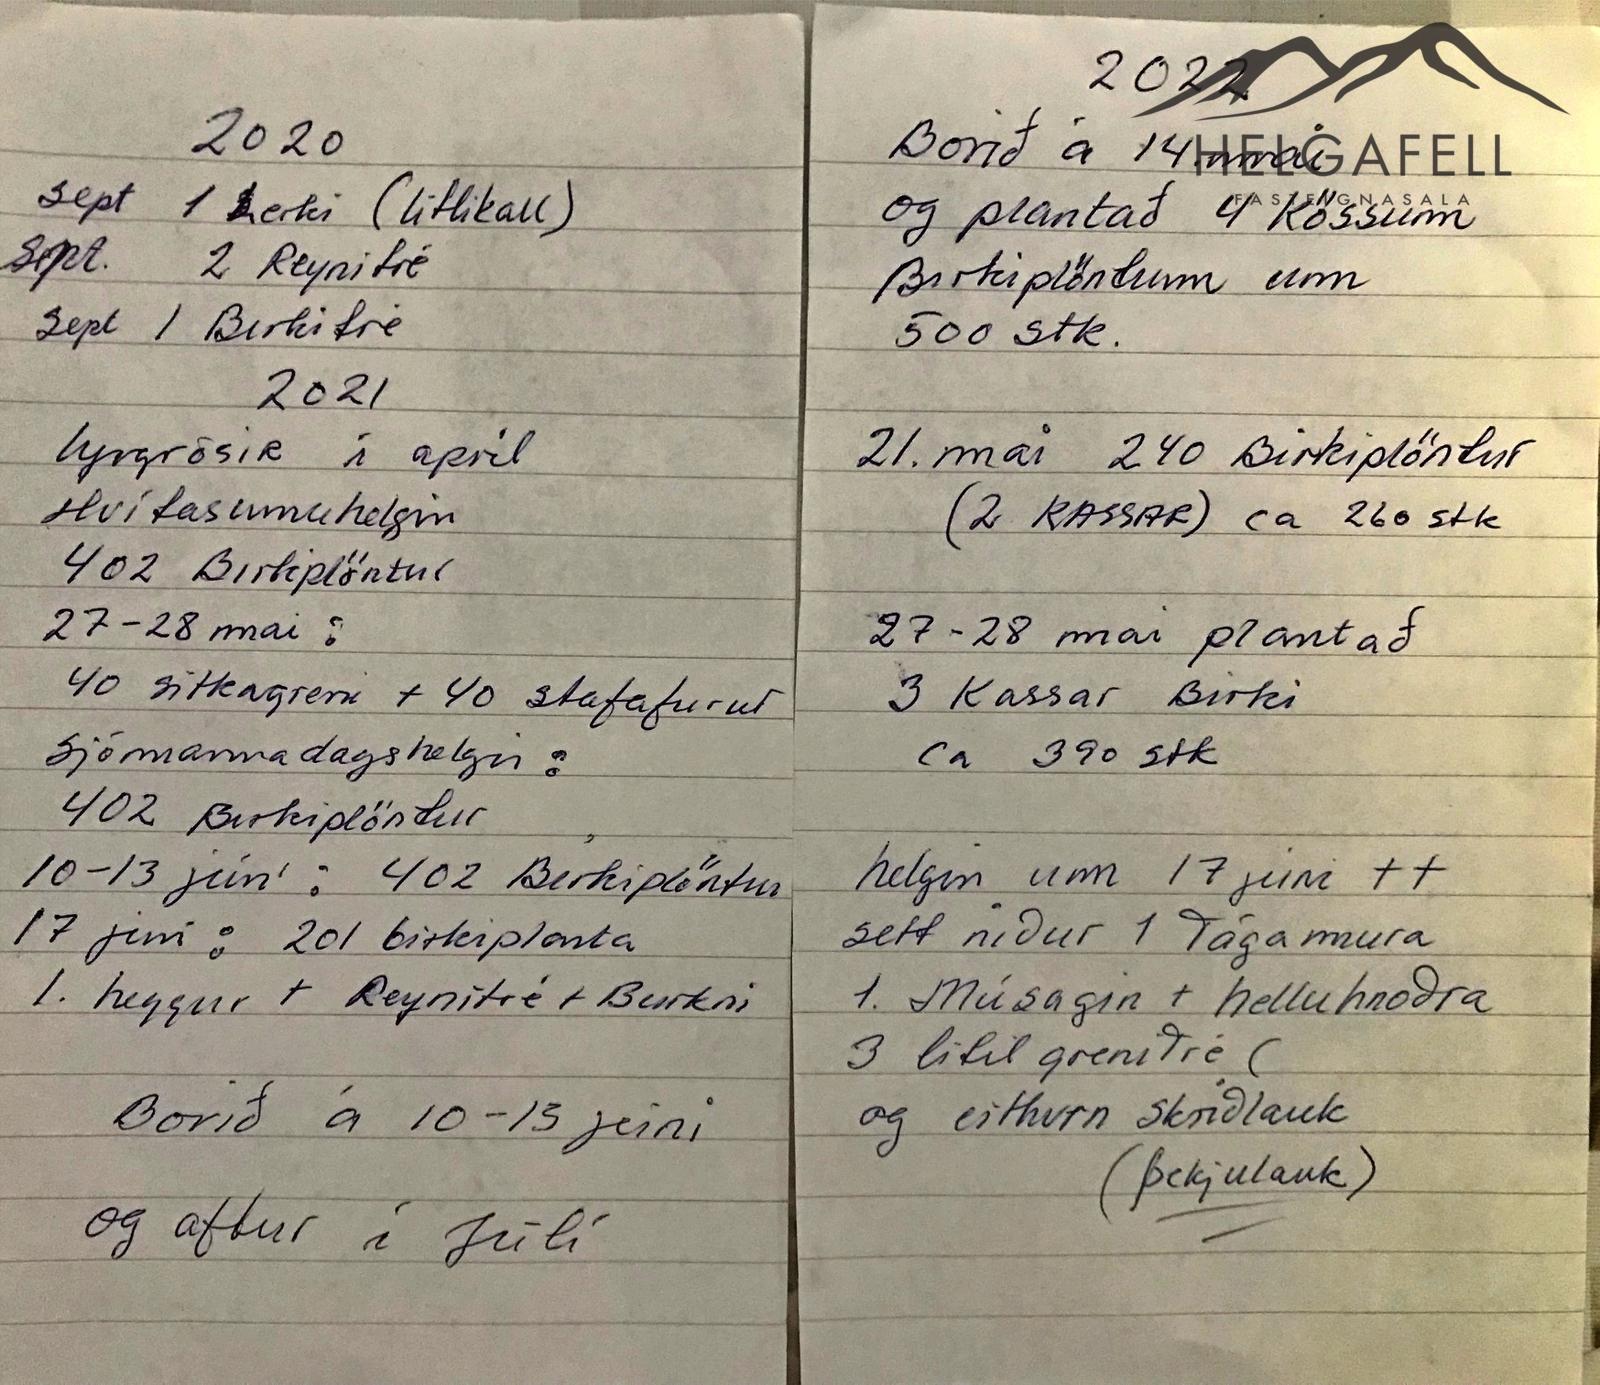 2020
sept 1 Lerki (litlikall)
Sept. 2 Reynitré
sept 1 Birkitré
2021
Lyngrósir í apríl
Hvítasunnuhelgin
402 Birkiplöntur
27-28 mai :
40 sitkagreni + 40 stafafurur
Sjómannadagshelgin :
402 Birkiplöntur
10-13 júní : 402 Birkiplöntur
17 júní : 201 birkiplanta
1. heggur + Reynitré + Burkni
Borið á 10-13 júní
og aftur í Júlí
2022
Borið á 14. maí
og plantað 4 Kössum
Birkiplöntum um
500 stk.
21. maí 240 Birkiplöntur
(2 KASSAR) ca 260 stk
27-28 mai plantað
3 Kassar Birki
ca 390 stk
helgin um 17 júní ++
sett niður 1 Tágamura
1. Músagin + helluhnoðra
3 lítil grenitré (
og eithvrn skriðlauk
(þekjulauk)
HELGAFELL
FASTEIGNASALA